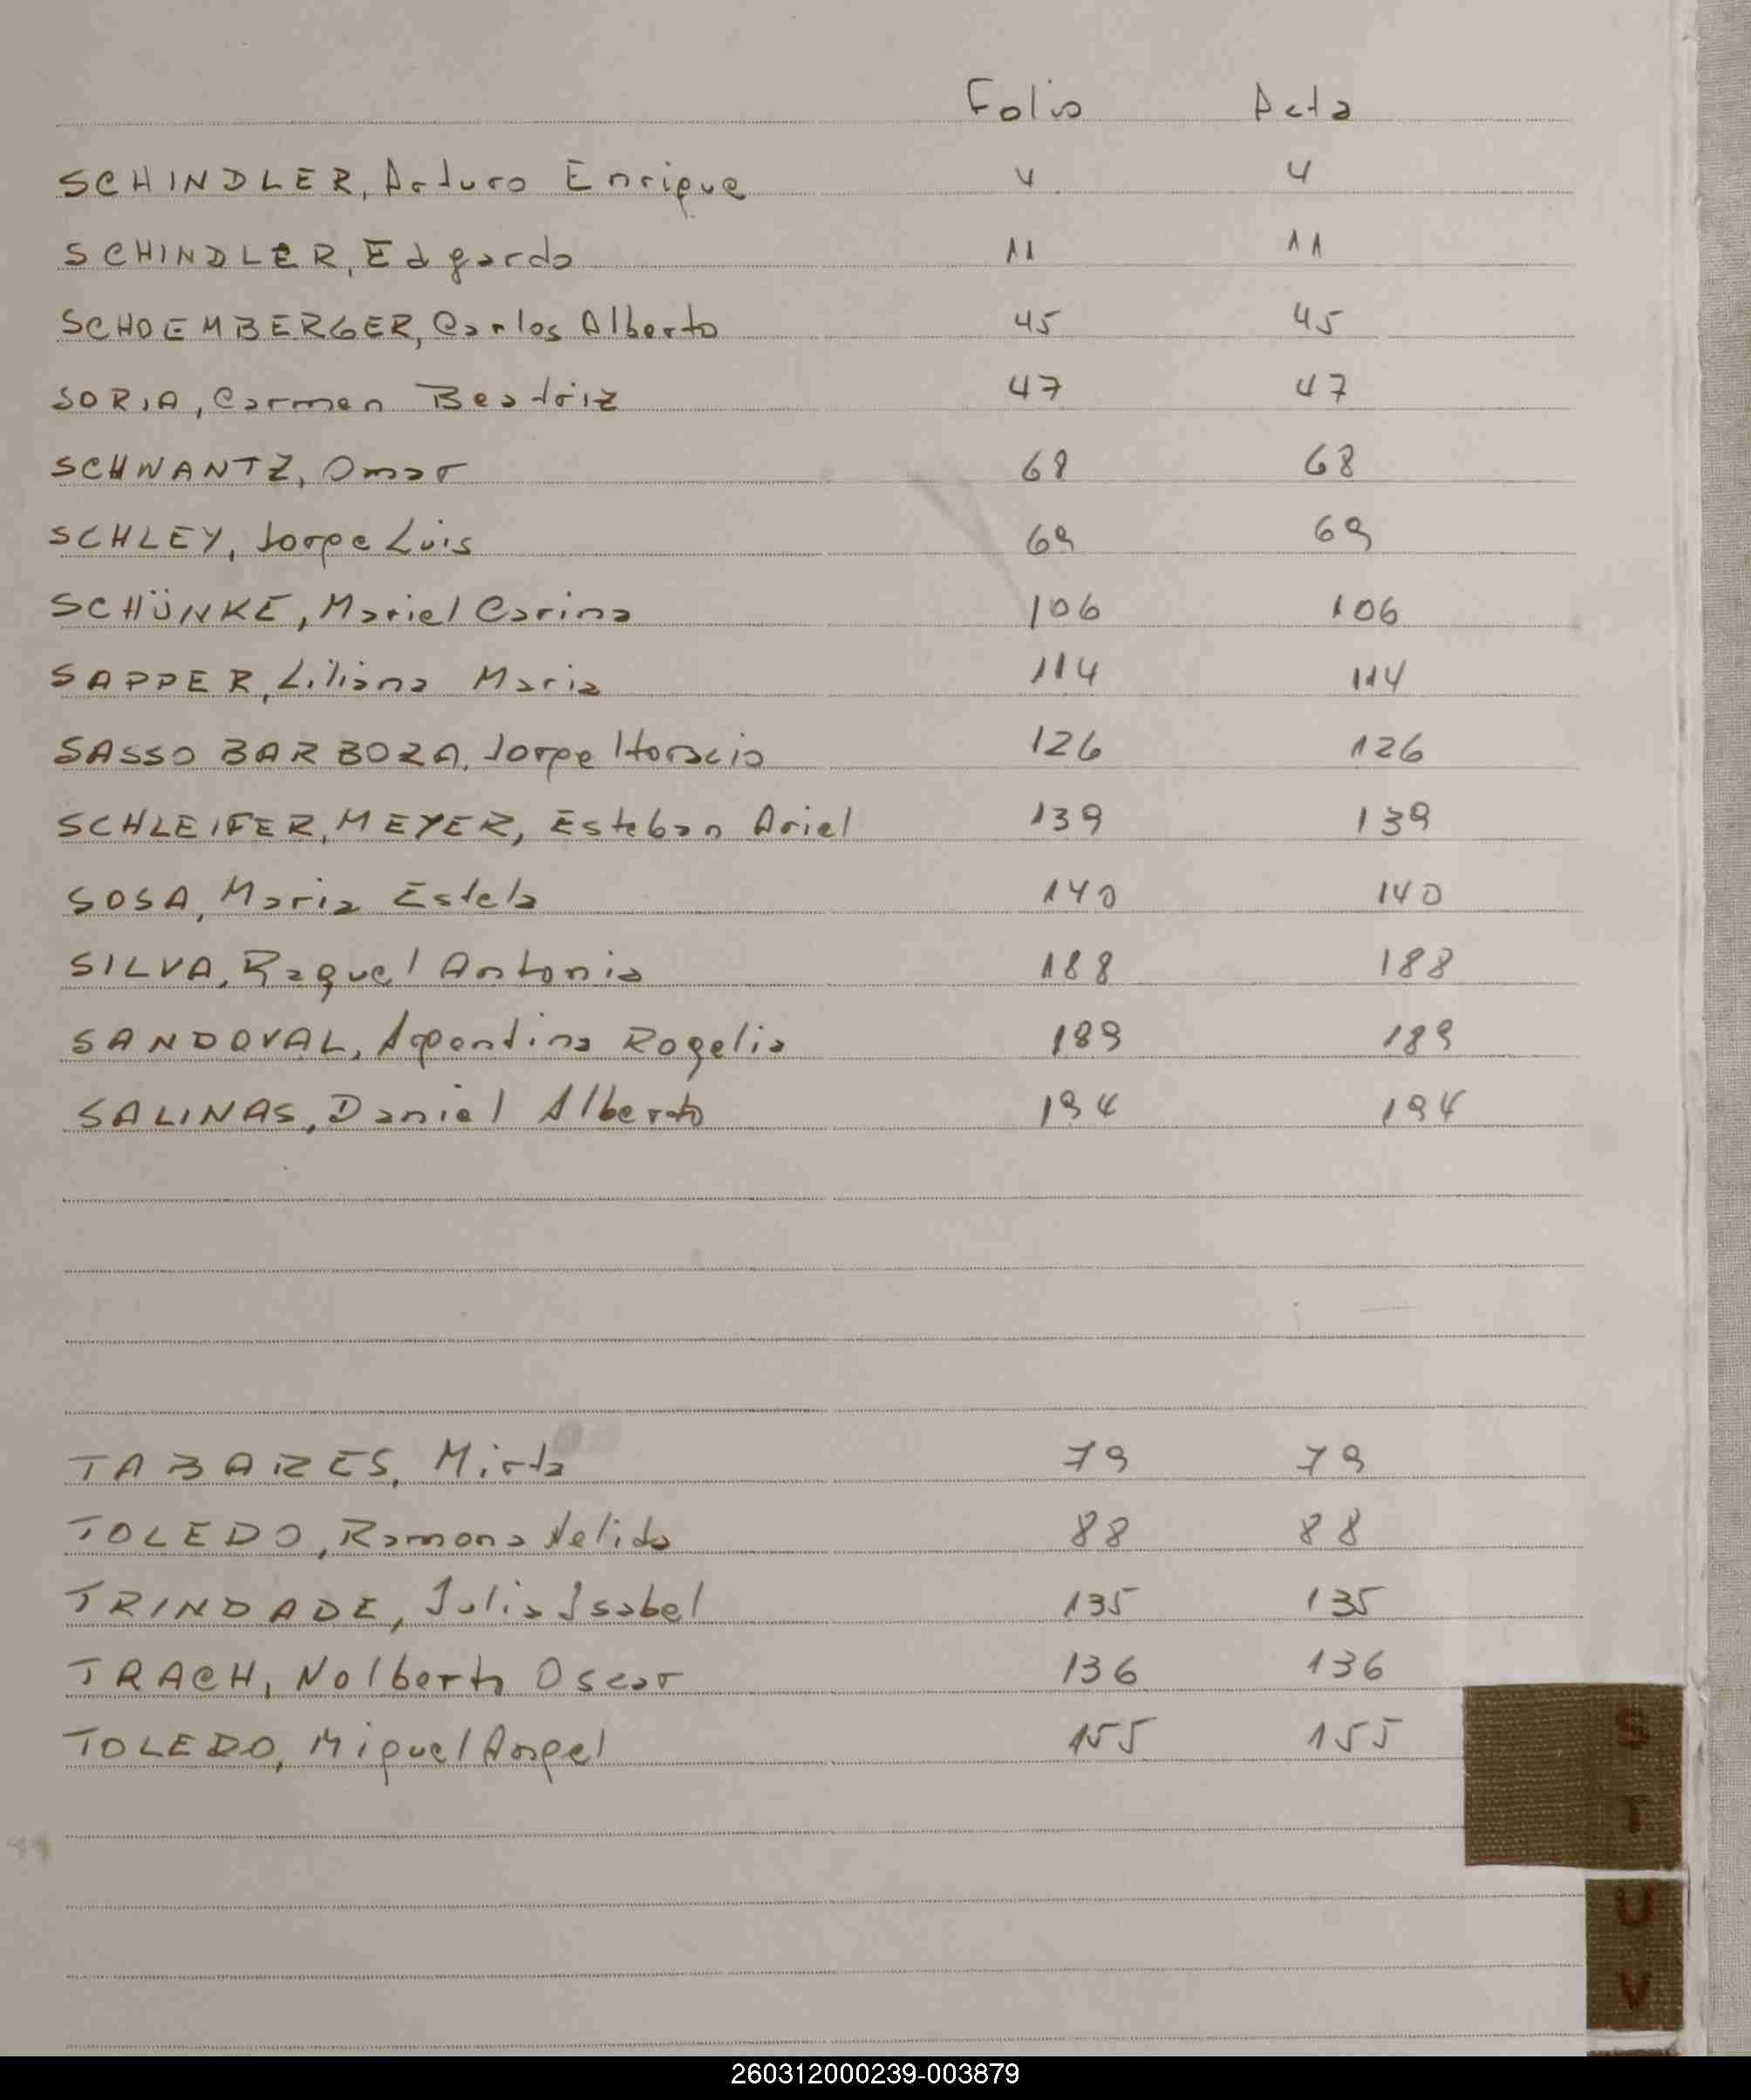 Folio Acta
SCHINDLER, Arturo Enrique 4 4
SCHINDLER, Edgardo 11 11
SCHOEMBERGER, Carlos Alberto 45 45
SORIA, Carmen Beatriz 47 47
SCHWANTZ, Omar 68 68
SCHLEY, Jorge Luis 69 69
SCHÜNKE, Mariel Carina 106 106
SAPPER, Liliana Maria 114 114
SASSO BARBOZA, Jorge Horacio 126 126
SCHLEIFER, MEYER, Esteban Ariel 139 139
SOSA, Maria Estela 140 140
SILVA, Raquel Antonia 188 188
SANDOVAL, Rogelia 189 189
SALINAS, Daniel Alberto 194 194
TABARES, Mirta 79 79
TOLEDO, Ramona Nelida 88 88
TRINDADE, Julia Isabel 135 135
TRACH, Nolberto Oscar 136 136
TOLEDO, Miguel Angel 155 155
S
T
U
V
260312000239-003879